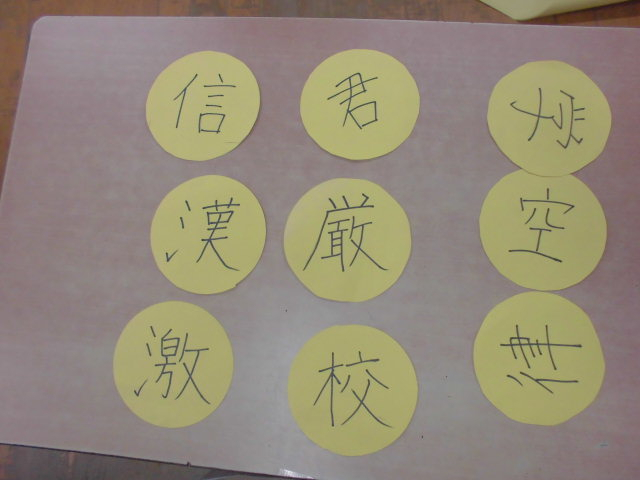 信 君
漢 厳 空
激 校